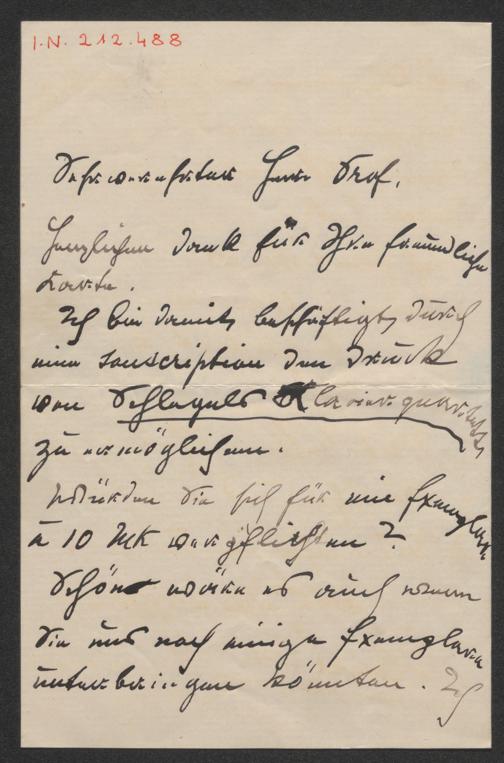 I.N. 212.488
Sehr verehrter Herr Prof.
Herzlichen Dank für Ihre freundliche
Karte.
Ich bin damit beschäftigt, durch
eine Souscription den Druck
von Schlegels Klavierquartett
zu ermöglichen.
Würden Sie sich für ein Exemplar
à 10 Mk verpflichten?
Schön wäre es auch wenn
Sie uns noch einige Exemplare
unterbringen könnten. Ich